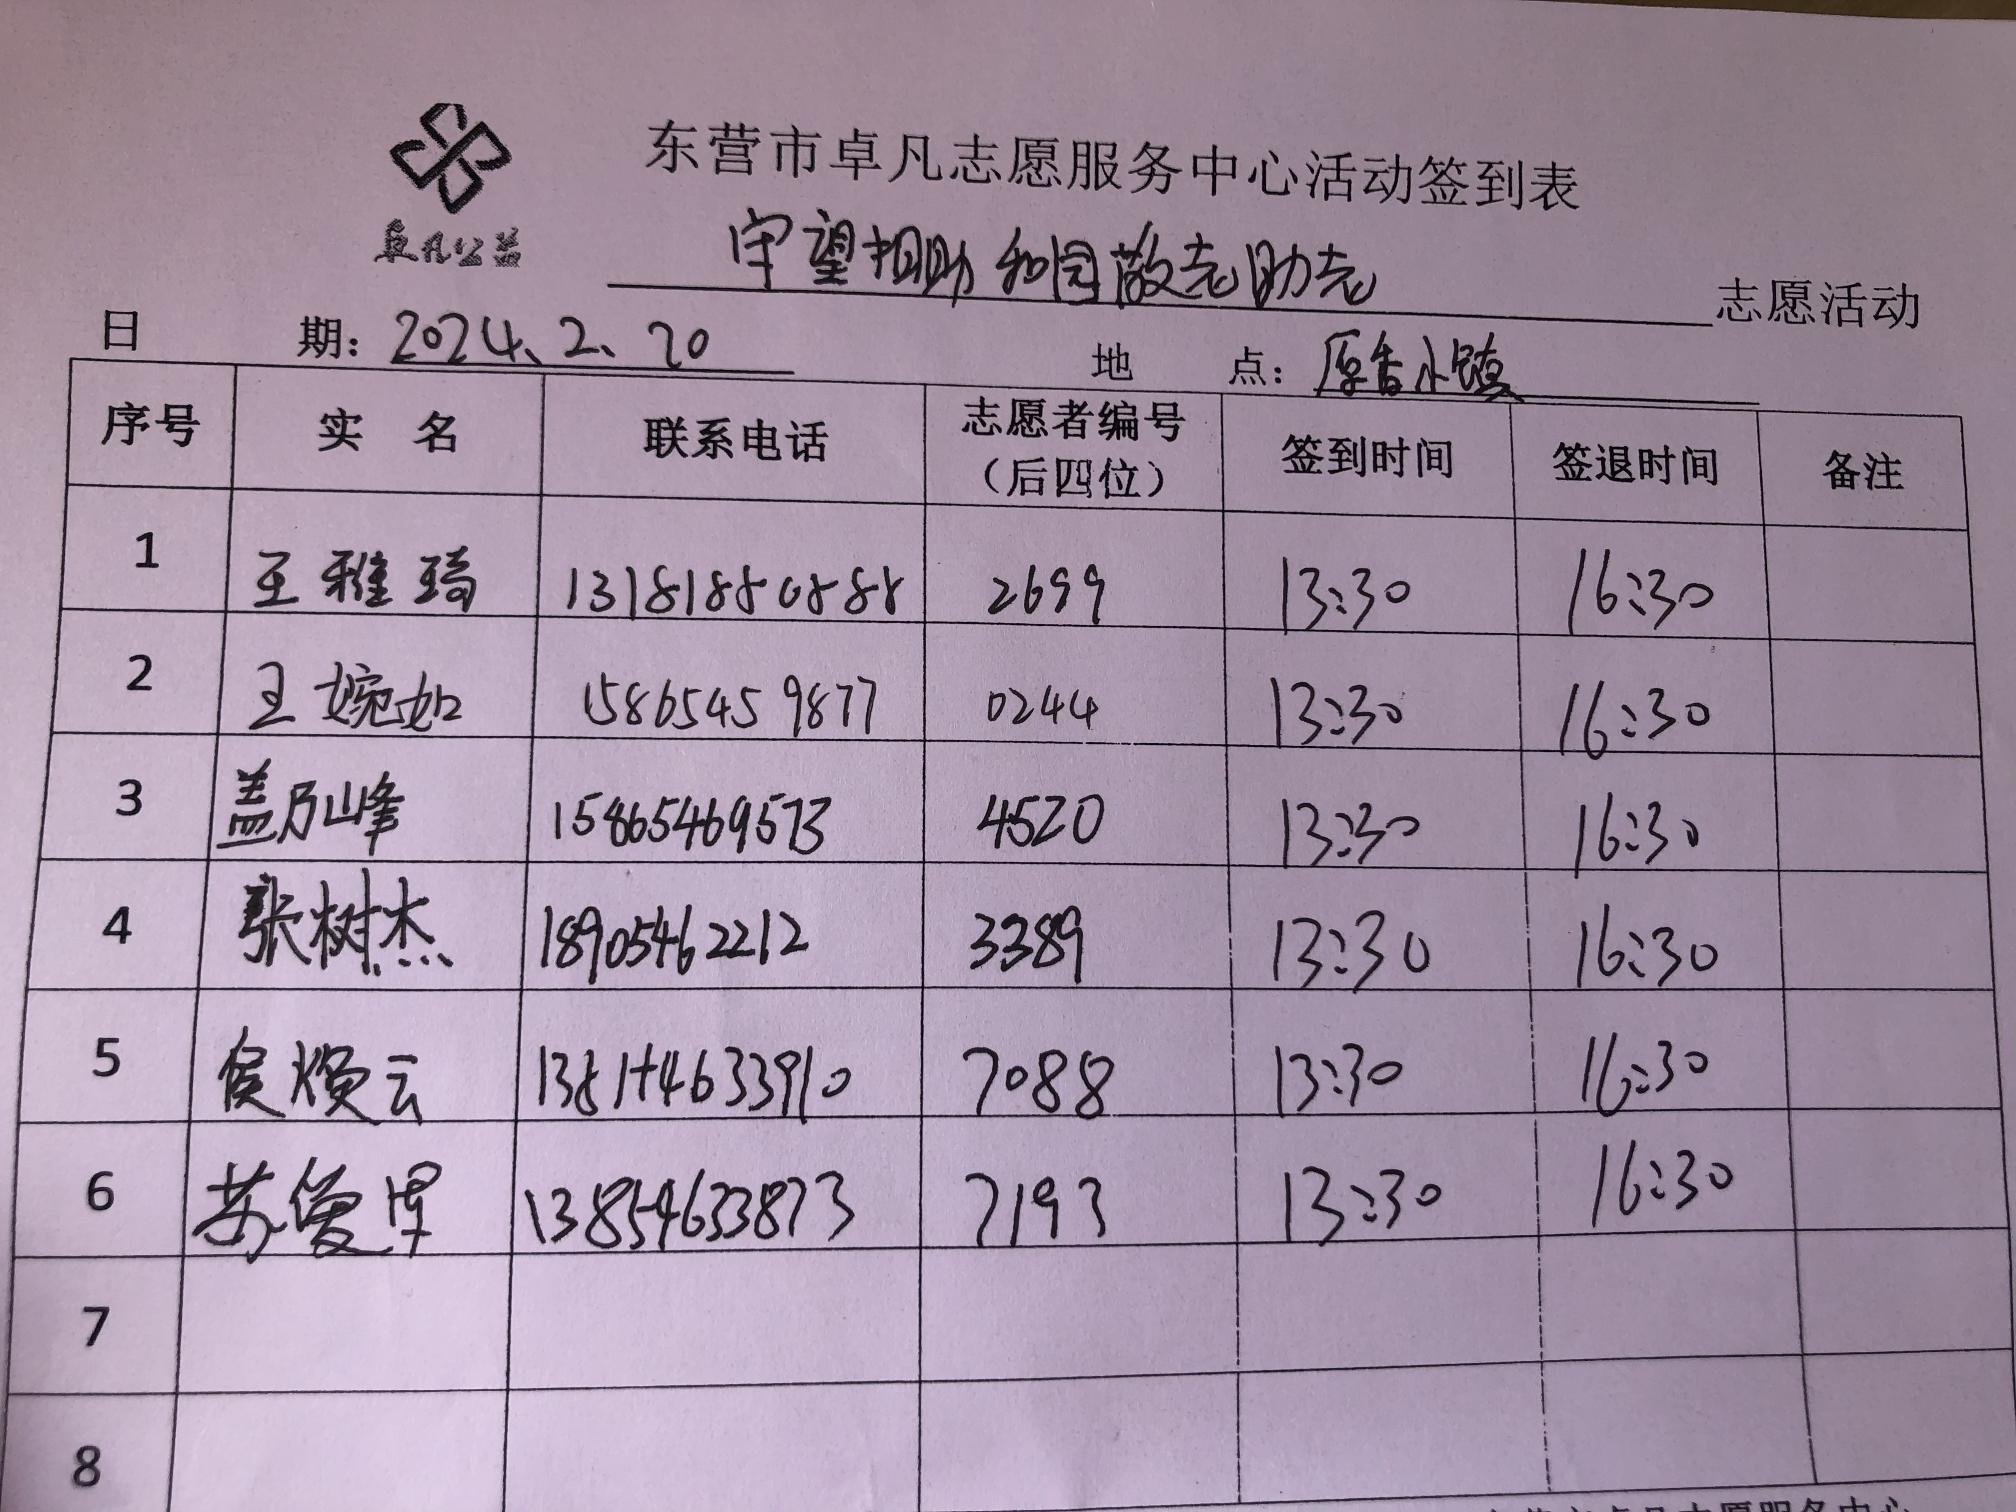 东营市卓凡志愿服务中心活动签到表
卓凡公益
守望相助 和园敬老助老 志愿活动
日 期: 2024、2、20 地 点: 原香小镇
序号 实 名 联系电话 志愿者编号（后四位） 签到时间 签退时间 备注
1 王雅琦 13181880888 2699 13:30 16:30
2 王婉如 15865459877 0244 13:30 16:30
3 盖乃峰 15865469573 4520 13:30 16:30
4 张树杰 18905462212 3389 13:30 16:30
5 侯焕云 7088 13:30 16:30
6 苏 13854633873 7193 13:30 16:30
7
8
东营市卓凡志愿服务中心